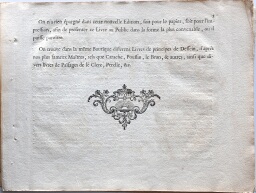 On n'a rien épargné dans cette nouvelle Edition, soit pour le papier, soit pour l'im-
pression, afin de présenter ce Livre au Public dans la forme la plus convenable, où il
puisse paroître.
On trouve dans la même Boutique différens Livres de principes de Dessein, d'après
nos plus fameux Maîtres, tels que Carache, Poussin, le Brun, & autres, ainsi que di-
vers Livres de Paysages de le Clerc, Perelle, &c.